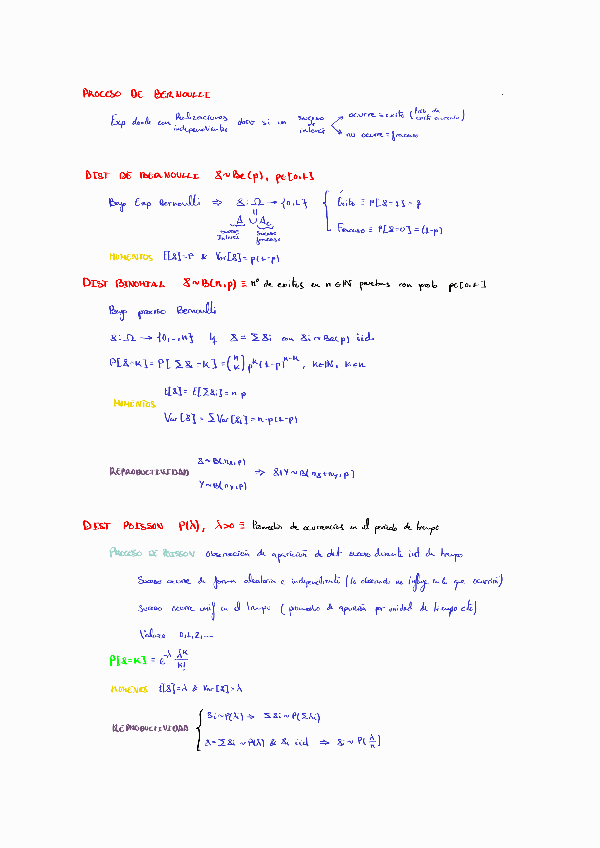 PROCESO DE BERNOULLI
Exp donde con Realizaciones independientes si un suceso de interés → ocurre = exito (
→ no ocurre = fracaso
DIST DE BERNOULLI X~Be(p), p∈[0,1]
Bajo Exp Bernoulli ⇒ X: Ω → {0,1} { Éxito ≡ P[X=1] = p
Fracaso ≡ P[X=0] = (1-p)
A ∪ Ac
suceso interés suceso fracaso
MOMENTOS E[X]=P & Var[X]=p(1-p)
DIST BINOMIAL X~B(n,p) ≡ nº de exitos en n∈ℕ pruebas con prob p∈[0,1]
Bajo proceso Bernoulli
X: Ω → {0,..,n} X = ΣXi con Xi~Be(p) iid
P[X=K] = P[ΣXi=K] = (n K) p^K (1-p)^(n-K), K∈ℕ, K≤n
MOMENTOS
E[X] = E[ΣXi] = n·p
Var[X] = ΣVar[Xi] = n·p(1-p)
REPRODUCTIVIDAD
X~B(nx,p)
Y~B(ny,p)
⇒ X+Y~B(nx+ny,p)
DIST POISSON P(λ), λ>0 ≡ Promedio de ocurrencias en el periodo de tiempo
PROCESO DE POISSON observación de aparición de det suceso durante int de tiempo
Suceso ocurre de forma aleatoria e independiente (lo observado no influye en lo que ocurrirá)
Suceso ocurre unif en el tiempo (promedio de aparición por unidad de tiempo cte)
Valores 0,1,2,...
P[X=K] = e^-λ λ^K/K!
MOMENTOS E[X]=λ & Var[X]=λ
REPRODUCTIVIDAD
Xi~P(λi) ⇒ ΣXi~P(Σλi)
X=ΣXi~P(λ) & Xi iid ⇒ Xi~P(λ/n)